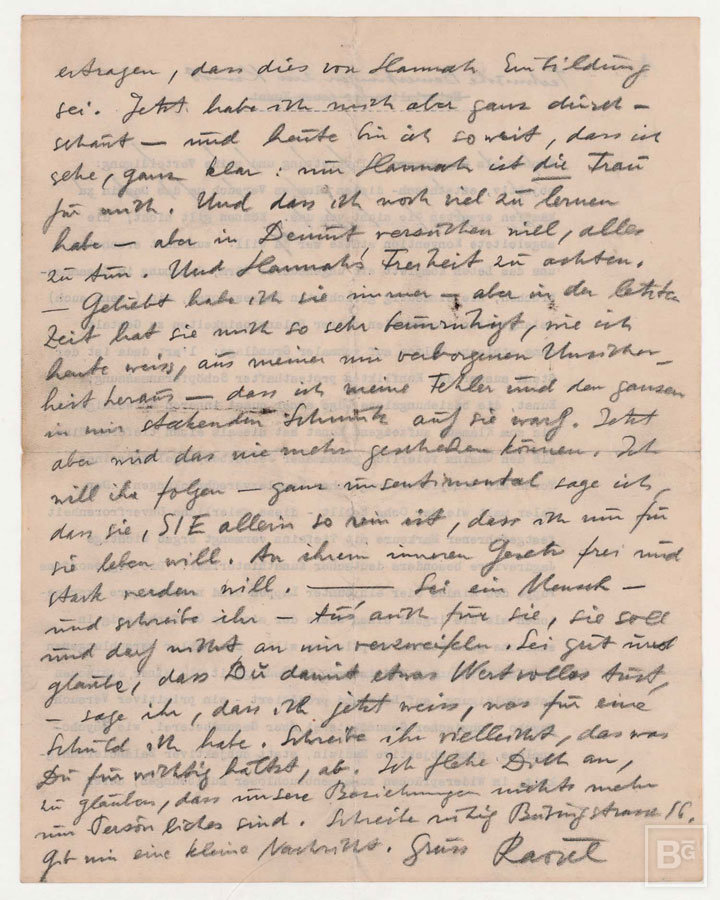 ertragen, dass dies von Hannah Einbildung
sei. Jetzt habe ich mich aber ganz durch-
schaut – und heute bin ich soweit, dass ich
sehe, ganz klar: nur Hannah ist die Frau
für mich. Und dass ich noch viel zu lernen
habe – aber in Demut versuchen will, alles
zu tun. Und Hannah's Freiheit zu achten.
– Geliebt habe ich sie immer – aber in der letzten
Zeit hat sie mich so sehr beunruhigt, wie ich
heute weiss, aus meiner mir verborgenen Unsicher-
heit heraus – dass ich meine Fehler und den ganzen
in mir steckenden Schmutz auf sie warf. Jetzt
aber wird das nie mehr geschehen können. Ich
will ihr folgen – ganz unsentimental sage ich,
dass sie, SIE allein so rein ist, dass ich nur für
sie leben will. An ihrem inneren Gesetz frei und
stark werden will. —— Sei ein Mensch –
und schreibe ihr – tu's auch für sie, sie soll
und darf nicht an mir verzweifeln. Sei gut und
glaube, dass Du damit etwas Wertvolles tust,
– sage ihr, dass ich jetzt weiss, was für eine
Schuld ich habe. Schreibe ihr vielleicht, das was
Du für wichtig hältst, ab. Ich flehe Dich an,
zu glauben, dass unsere Beziehungen nichts mehr
nur Persönliches sind. Schreibe ruhig 16.
Gib mir eine kleine Nachricht. Gruss Raoul
BG